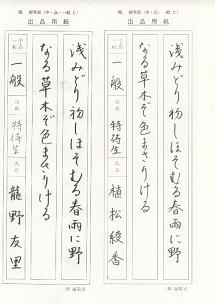 出品用紙
一般
特待生
氏名
植松綾香
浅みどり初しほそむる春雨に野
なる草木ぞ色まさりける
出品用紙
一般
特待生
氏名
龍野友里
浅みどり初しほそむる春雨に野
なる草木ぞ色まさりける